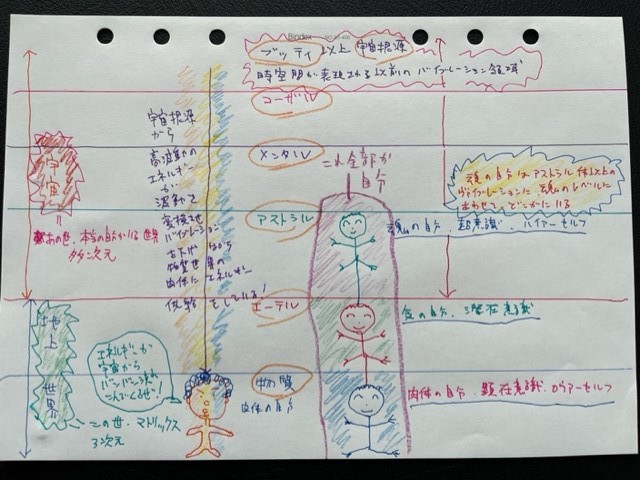 Bindex
ブッディ以上 宇宙根源
時空間が表現される以前のバイブレーション領域
コーザル
宇宙根源
から
高波動の
エネルギー
が
メンタル
これ全部が
自分
宇宙
魂の自分はアストラル体以上の
ヴァイブレーションに魂のレベルに
合わせて、どこかにいる
アストラル
魂の自分、超意識、ハイアーセルフ
あの世、本当の自分がいる世界
多次元
バイブレーション
物質世界の
肉体にエネルギー
供給をしている!
エーテル
気の自分、潜在意識
地上世界
エネルギーが
宇宙から
バンバン流れ
こんでくるぜ!
物質
肉体の自分
肉体の自分、顕在意識、ロウアーセルフ
この世、マトリックス
3次元